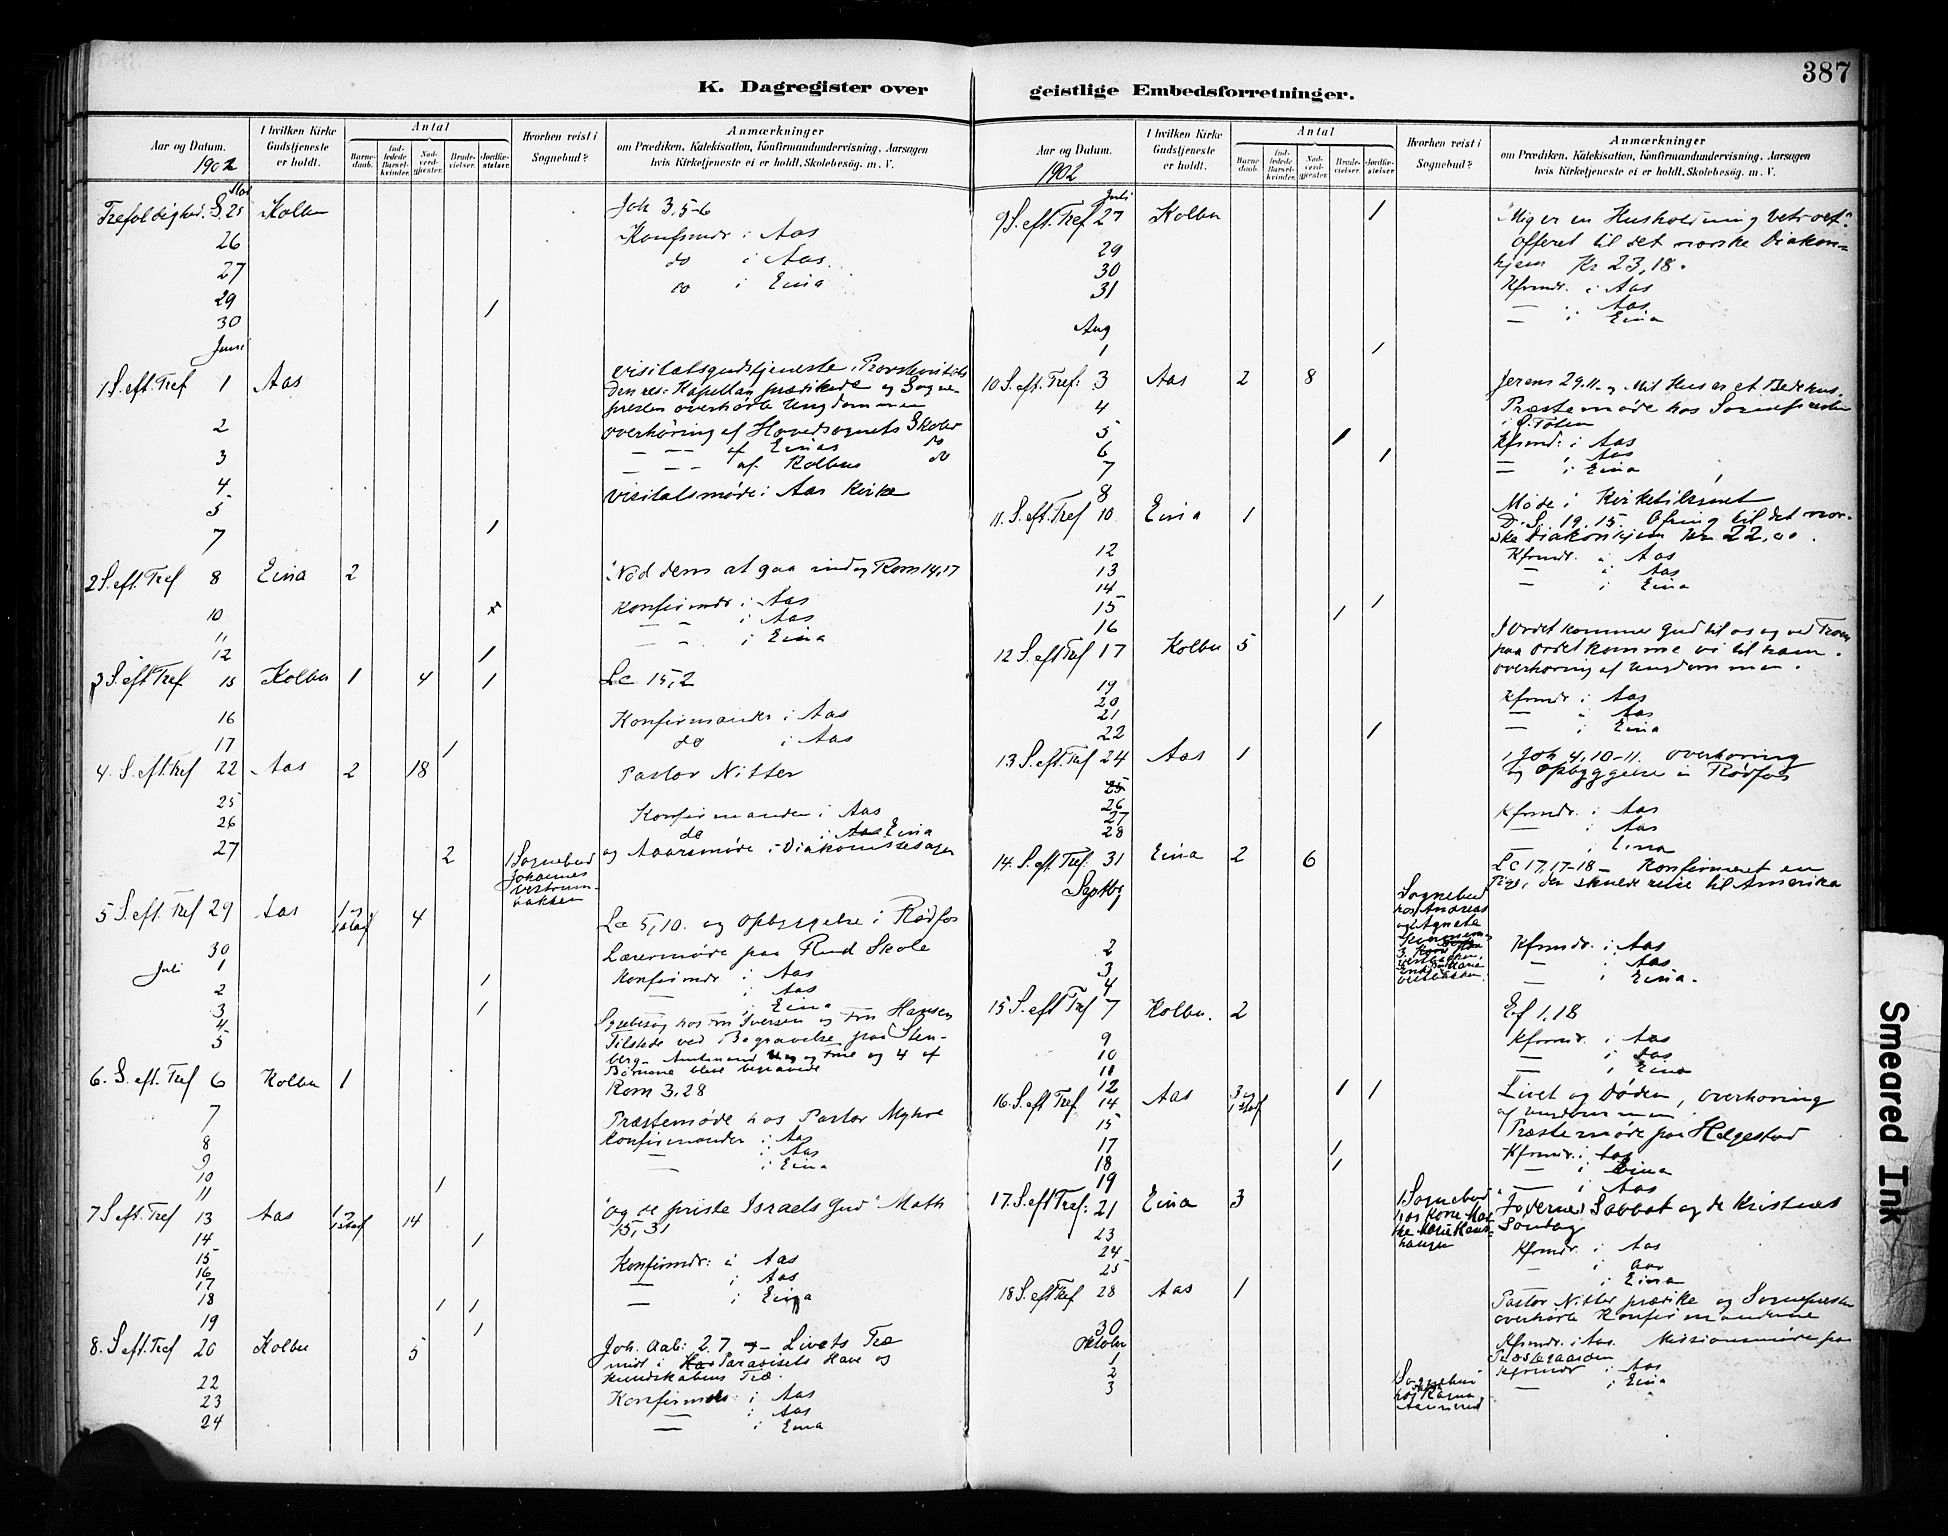 387
K. Dagregister over geistlige Embedsforretninger.
Aar og Datum.
1902
I hvilken Kirke Gudstjeneste er holdt.
Antal
Barnedaab.
Indledede Barselkvinder.
Nadverdgjester.
Brudevielser.
Jordfæstelser.
Hvorhen reist i Sognebud?
Anmærkninger
om Prædiken, Katekisation, Konfirmandundervisning, Aarsagen
hvis Kirketjeneste ei er holdt, Skolebesög, m. V.
Mai
Trefoldighed. S. 25 Kolbu Joh 3,5-6
26 Konfrmdr i Aas
27 do i Aas
29 do i Eina
30 1
Juni
1 S. eft. Tref 1 Aas Visitatsgudstjeneste
Den res: Kapellan prædikede og Sogne-
presten overhørte Ungdommen
2 overhøring af Hovedsognets Skoler
3 — — af Einas do
4 — — af Kolbus do
5 Visitatsmøde i Aas Kirke
7 1
2 S. eft Tref 8 Eina 2 "Nød dem at gaa ind og Rom 14,17
10 Konfirmdr i Aas
11 — i Aas
12 1 — i Eina
3 S. eft Tref 15 Kolbu 1 4 1 Lc 15,2
16 Konfirmander i Aas
17 1 do i Aas
4. S. eft. Tref 22 Aas 2 18 Pastor Nitter
25 Konfirmander i Aas
26 do i Aas Eina
27 2 1 Sognebud Johannes og Aarsmøde i Diakonissesagen
5 S. eft Tref 29 Aas 4 Lc 5,10. og Opbyggelse i Rødfos
30 Lærermøde paa Rud Skole
Juli 1 Konfirmdr i Aas
2 1 — i Aas
3 1 i Eina
4 Sygebesøg hos Fru Iversen og Fru Hansen
5 Tilstede ved Begravelse paa Sten-
berg
Børnene blev begravede
6. S. eft. Tref 6 Kolbu 1 Rom 3,28
7 Præstemøde hos Pastor
8 Konfirmander i Aas
9 — i Aas
10 — i Eina
11 1
7 S eft. Tref 13 Aas 14 "og de priste Israels Gud" Math
14 1 15,31
15 Konfirmdr: i Aas
16 — i Aas
17 — i Eina
18 1 1
19 1
8. S eft Tref 20 Kolbu 5 Joh. Aab: 2.7 — Livets Træ
midt i Paradisets Have og
Kundskabens Træ.
22 Konfirmdr: i Aas
23 — i Aas
24 i Eina
Aar og Datum.
1902
I hvilken Kirke Gudstjeneste er holdt.
Antal
Barnedaab.
Indledede Barselkvinder.
Nadverdgjester.
Brudevielser.
Jordfæstelser.
Hvorhen reist i Sognebud?
Anmærkninger
om Prædiken, Katekisation, Konfirmandundervisning, Aarsagen
hvis Kirketjeneste ei er holdt, Skolebesög, m. V.
Juli
9 S. eft. Tref 27 Kolbu 1 "Mig er en Husholdning betroet".
Offeret til det norske Diakon-
hjem Kr 23,18.
29 Kfrmdr. i Aas
30 — i Aas
31 — i Eina
Aug
1 1
10 S. eft. Tref: 3 Aas 2 8 Jerems 29.11. og Mit Hus er et Bedehus.
4 Præstemøde hos Sognepresten
i Ø. Toten
5 1 Kfrmd: i Aas
6 1 — i Aas
7 — i Eina
8 Møde i Kirketilsynet
11. S. eft. Tref 10 Eina 1 D. S. 19.15. Ofring til det nor-
ske Diakonhjem Kr 22,00.
12 Kfrmdr. i Aas
13 — i Aas
14 — i Eina
15 1 1
16
12 S. eft Tref 17 Kolbu 5 I Ordet kommer Gud til os og ved Troen
paa Ordet komme vi til ham.
overhøring af Ungdommen.
19 Kfrmdr i Aas
20 — i Aas
21 — i Eina
22 1
13 S. eft. Tref 24 Aas 1 1 Joh 4,10-11. overhøring
og Opbyggelse i Rødfos
25
26 Kfrmdr. i Aas
27 — i Aas
28 — i Eina
14. S. eft. Tref. 31 Eina 2 6 Lc 17,17-18 — Konfirmeret en
Pige, der skulde reise til Amerika
Septbr
1 Sognebud hos Andreas og Agnete
2 Kfrmdr. i Aas
3 — i Aas
4 — i Eina.
15 S. eft Tref 7 Kolbu. 2 Ef 1,18
9 Kfrmdr. i Aas
10 — i Aas
11 — i Eina
12 1 1
16. S. eft Tref 14 Aas Livet og Døden, overhøring
af Ungdommen.
15 Præstemøde paa Helgestad
17 1 Kfrmdr. i Aas
18 1 — i Eina
19 — i Aas
17. S. eft Tref: 21 Eina 3 1 Sognebud Jødernes Sabbat og de Kristnes
Søndag
23 Kfrmdr. i Aas
24 — i Aas
25 i Eina
18 S. eft Tref 28 Aas 1 Pastor Nitter prædike og Sognepresten
overhørte Konfirmanderne
30 Kfrmdr. i Aas. Missionsmøde paa
Præstegaarden
Oktober
1 Kfrmdr i Aas
2 — i Eina
3 Sognebud hos
Smeared Ink